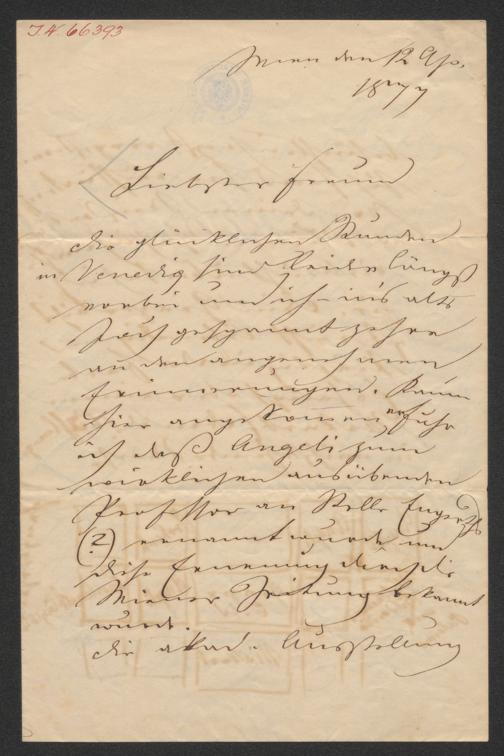 I.N. 66393
Wien den 12 Ap.
1877
Liebster Freund
die glücklichen Stunden
in Venedig sind leider längst
vorbei und ich ins alte
Joch gespannt zehre
an den angenehmen
Erinnerungen. Kaum
hier angekommen, erfuhr
ich daß Angeli zum
wirklichen ausübenden
Professor an Stelle Engerths
(?) ernannt wurde und
diese Ernennung durch die
Wiener Zeitung bekannt
wurde.
die akad. Ausstellung